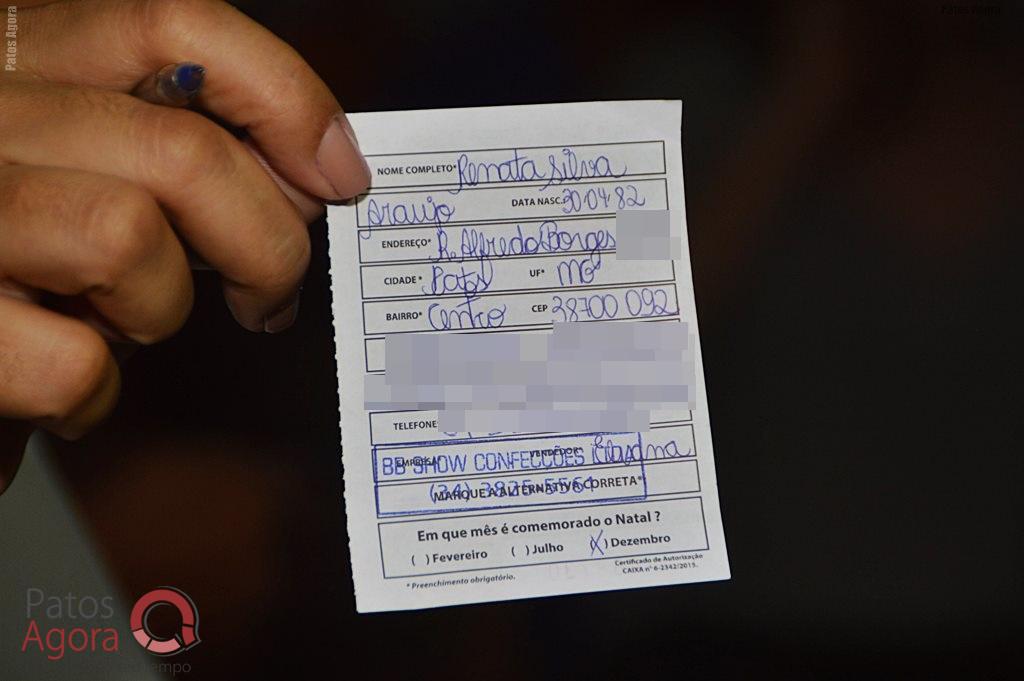 Patos Agora
Patos Agora
NOME COMPLETO* Renata Silva
Araujo DATA NASC. 30 04 82
ENDEREÇO* R. Alfredo Borges
CIDADE* Patos UF* MG
BAIRRO* Centro CEP 38700 092
TELEFONE
EMPRESA* VENDEDOR*
BB SHOW CONFECÇÕES
MARQUE A ALTERNATIVA CORRETA*
Em que mês é comemorado o Natal ?
( ) Fevereiro ( ) Julho (X) Dezembro
* Preenchimento obrigatório.
Certificado de Autorização
CAIXA nº 6-2342/2015.
Patos
Agora